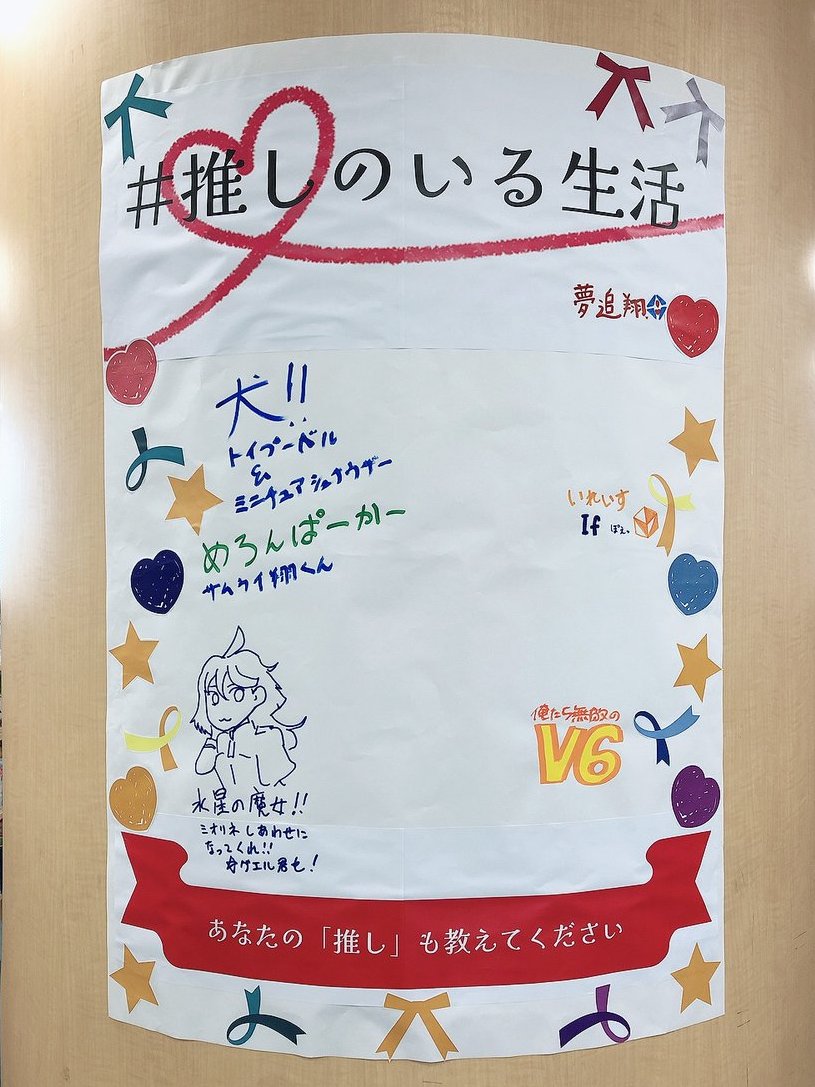 #推しのいる生活
夢追翔
犬!!
トイプードル
&
ミニチュアシュナウザー
めろんぱーかー
サムライ翔くん
いれいす
If ぽえ。
水星の魔女!!
ミオリネしあわせに
なってくれ!!
グエル君も!
俺たち無敵の
V6
あなたの「推し」も教えてください